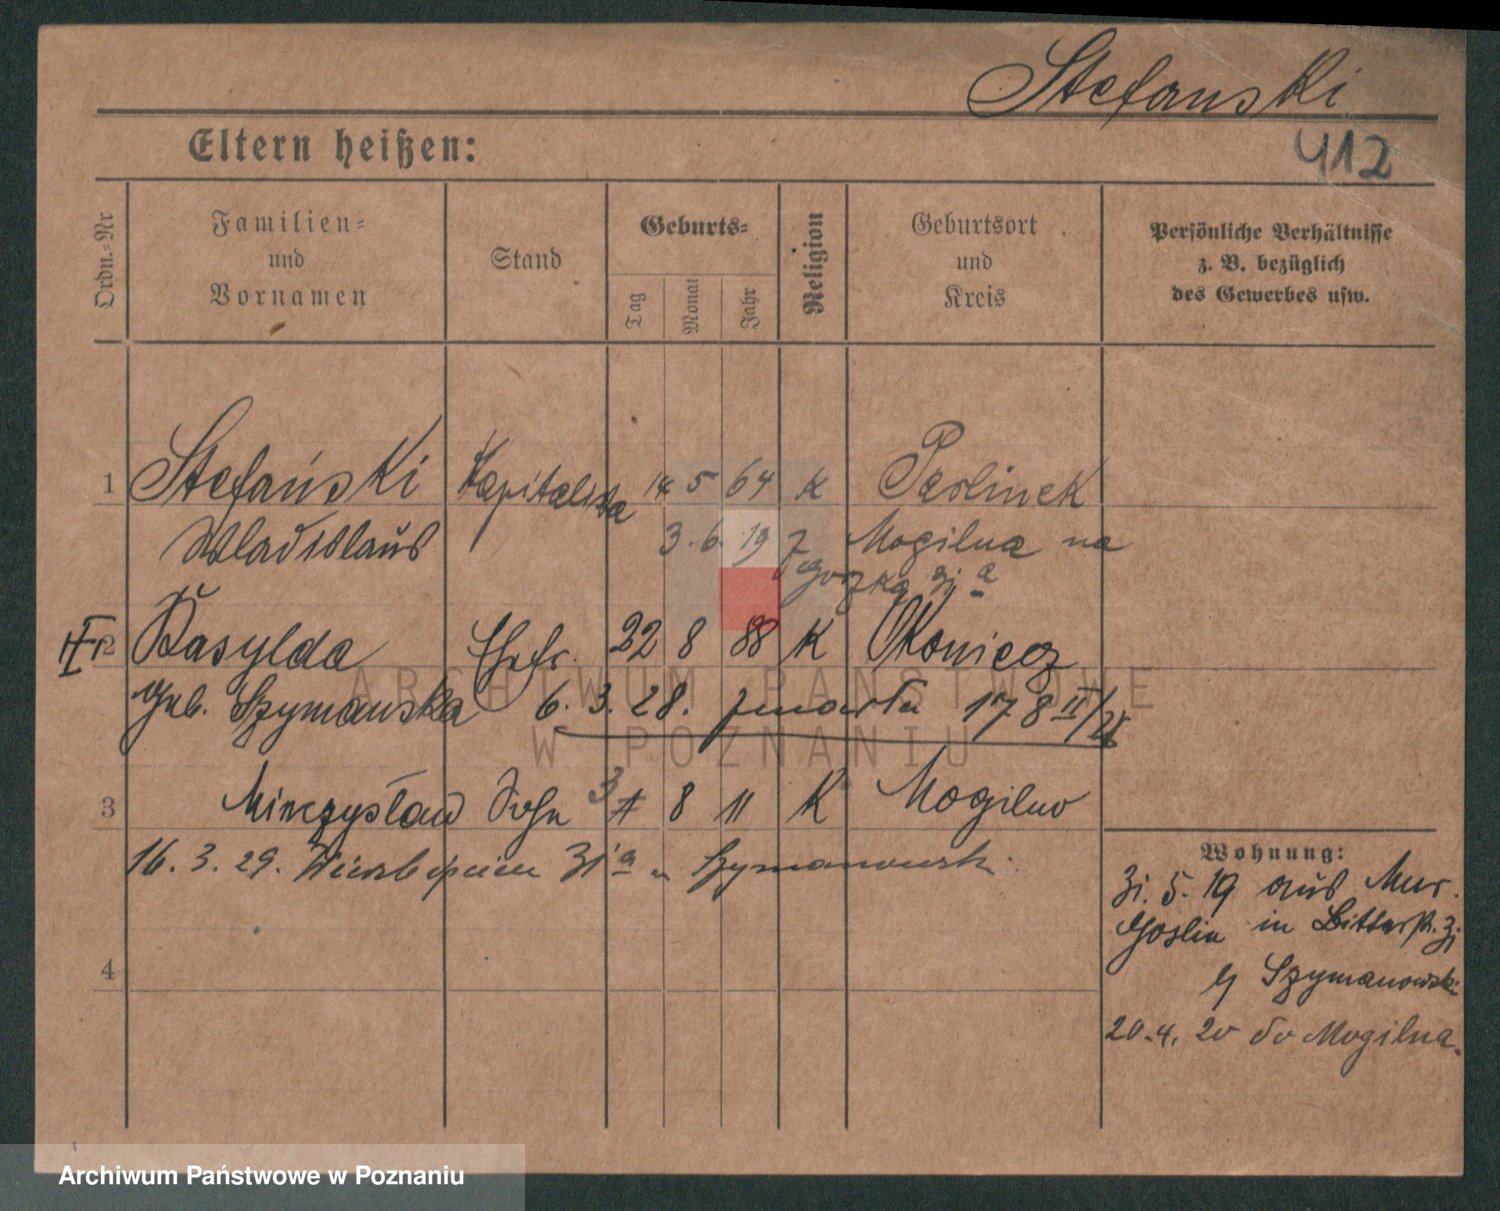 Stefanski
412
Eltern heißen:
Ordn.=Nr
Familien=
und
Vornamen
Stand
Geburts=
Tag
Monat
Jahr
Religion
Geburtsort
und
Kreis
Persönliche Verhältnisse
z. B. bezüglich
des Gewerbes usw.
1 Stefański Kapitalista 14 5 64 K Parlinek
Wladislaus 3. 6. 19 z Mogilna na
2 Kasylda Ehefr. 22 8 88 K Okoniecz
geb. Szymanska 6. 3. 28. zmarła 178 II/28
3 Mieczysław Sohn 8 11 K Mogilno
16. 3. 29. 31a Szymanowsk.
4
Wohnung:
31. 5. 19 aus Mur.
Goslin in Bitterstr. 31
b/ Szymanowski
20. 4. 20 do Mogilna.
ARCHIWUM PAŃSTWOWE
W POZNANIU
Archiwum Państwowe w Poznaniu